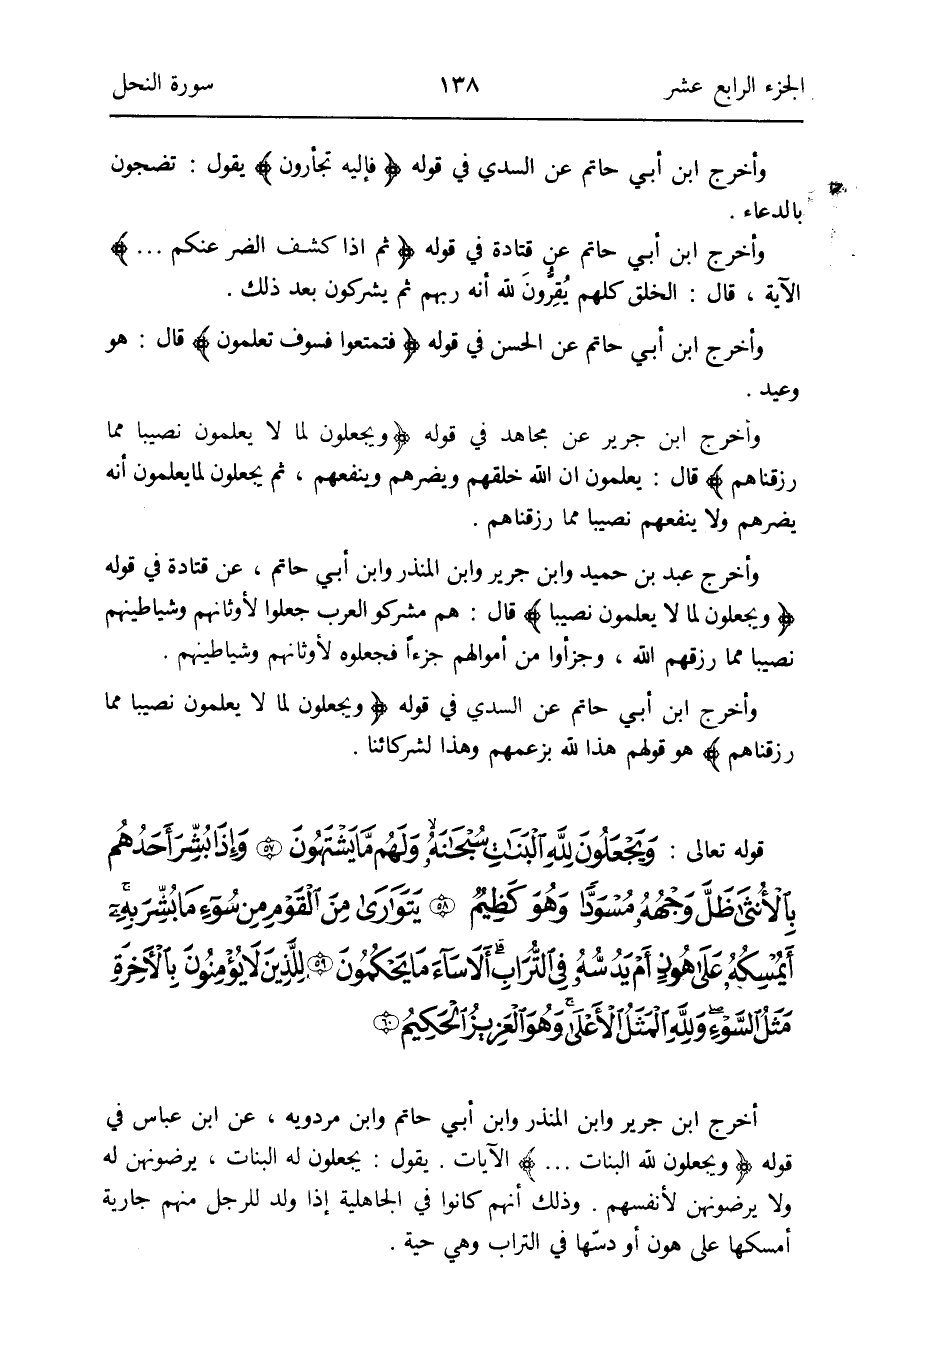 الجزء الرابع عشر ١٣٨ سورة النحل
وأخرج ابن أبي حاتم عن السدي في قوله ﴿ فإليه تجأرون ﴾ يقول : تضجون
بالدعاء .
وأخرج ابن أبي حاتم عن قتادة في قوله ﴿ ثم اذا كشف الضر عنكم ... ﴾
الآية ، قال : الخلق كلهم يُقِرُّونَ لله أنه ربهم ثم يشركون بعد ذلك .
وأخرج ابن أبي حاتم عن الحسن في قوله ﴿ فتمتعوا فسوف تعلمون ﴾ قال : هو
وعيد .
وأخرج ابن جرير عن مجاهد في قوله ﴿ ويجعلون لما لا يعلمون نصيبا مما
رزقناهم ﴾ قال : يعلمون ان الله خلقهم ويضرهم وينفعهم ، ثم يجعلون لمايعلمون أنه
يضرهم ولا ينفعهم نصيبا مما رزقناهم .
وأخرج عبد بن حميد وابن جرير وابن المنذر وابن أبي حاتم ، عن قتادة في قوله
﴿ ويجعلون لما لا يعلمون نصيبا ﴾ قال : هم مشركو العرب جعلوا لأوثانهم وشياطينهم
نصيبا مما رزقهم الله ، وجزأوا من أموالهم جزءاً فجعلوه لأوثانهم وشياطينهم .
وأخرج ابن أبي حاتم عن السدي في قوله ﴿ ويجعلون لما لا يعلمون نصيبا مما
رزقناهم ﴾ هو قولهم هذا لله بزعمهم وهذا لشركائنا .
قوله تعالى : وَيَجْعَلُونَ لِلَّهِ الْبَنَاتِ سُبْحَانَهُ ۙ وَلَهُم مَّا يَشْتَهُونَ ۝٥٧ وَإِذَا بُشِّرَ أَحَدُهُم
بِالْأُنثَىٰ ظَلَّ وَجْهُهُ مُسْوَدًّا وَهُوَ كَظِيمٌ ۝٥٨ يَتَوَارَىٰ مِنَ الْقَوْمِ مِن سُوءِ مَا بُشِّرَ بِهِ ۚ
أَيُمْسِكُهُ عَلَىٰ هُونٍ أَمْ يَدُسُّهُ فِي التُّرَابِ ۗ أَلَا سَاءَ مَا يَحْكُمُونَ ۝٥٩ لِلَّذِينَ لَا يُؤْمِنُونَ بِالْآخِرَةِ
مَثَلُ السَّوْءِ ۖ وَلِلَّهِ الْمَثَلُ الْأَعْلَىٰ ۚ وَهُوَ الْعَزِيزُ الْحَكِيمُ ۝٦٠
أخرج ابن جرير وابن المنذر وابن أبي حاتم وابن مردويه ، عن ابن عباس في
قوله ﴿ ويجعلون لله البنات ... ﴾ الآيات . يقول : يجعلون له البنات ، يرضونهن له
ولا يرضونهن لأنفسهم . وذلك أنهم كانوا في الجاهلية إذا ولد للرجل منهم جارية
أمسكها على هون أو دسّها في التراب وهي حية .